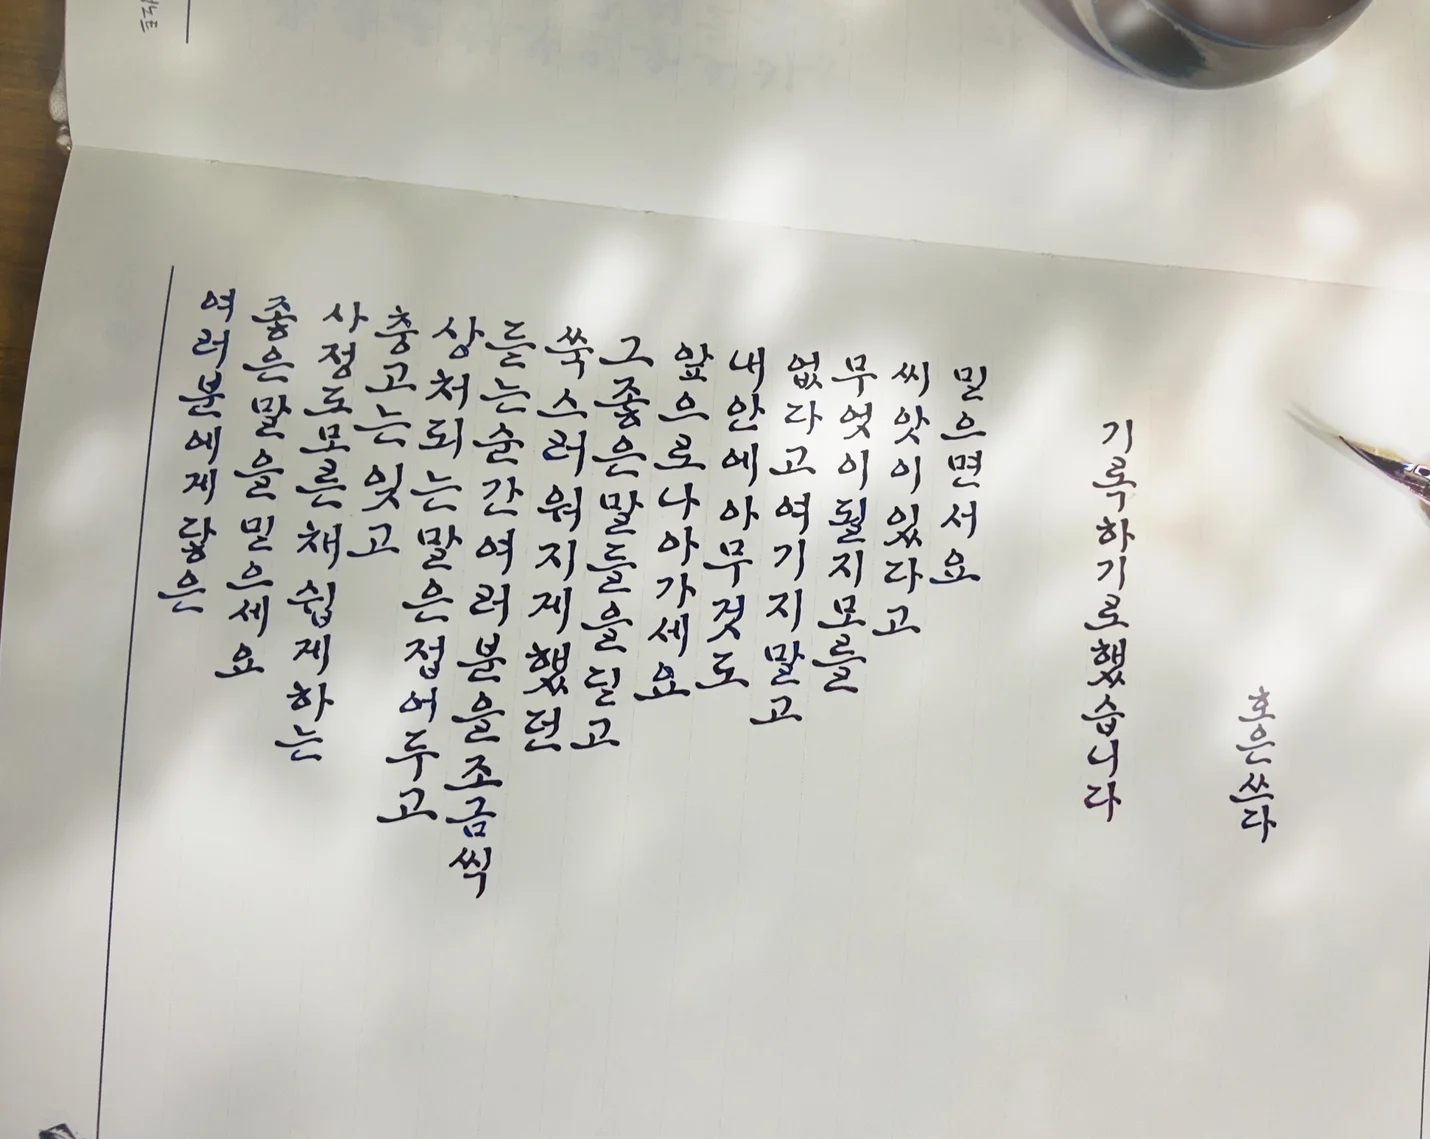 여러분에게 닿은
좋은 말을 믿으세요
사정도 모른 채 쉽게 하는
충고는 잊고
상처되는 말은 접어두고
듣는 순간 여러분을 조금씩
쑥스러워지게 했던
그 좋은 말들을 딛고
앞으로 나아가세요
내 안에 아무것도
없다고 여기지 말고
무엇이 될지 모를
씨앗이 있다고
믿으면서요
기록하기로 했습니다
호은 쓰다